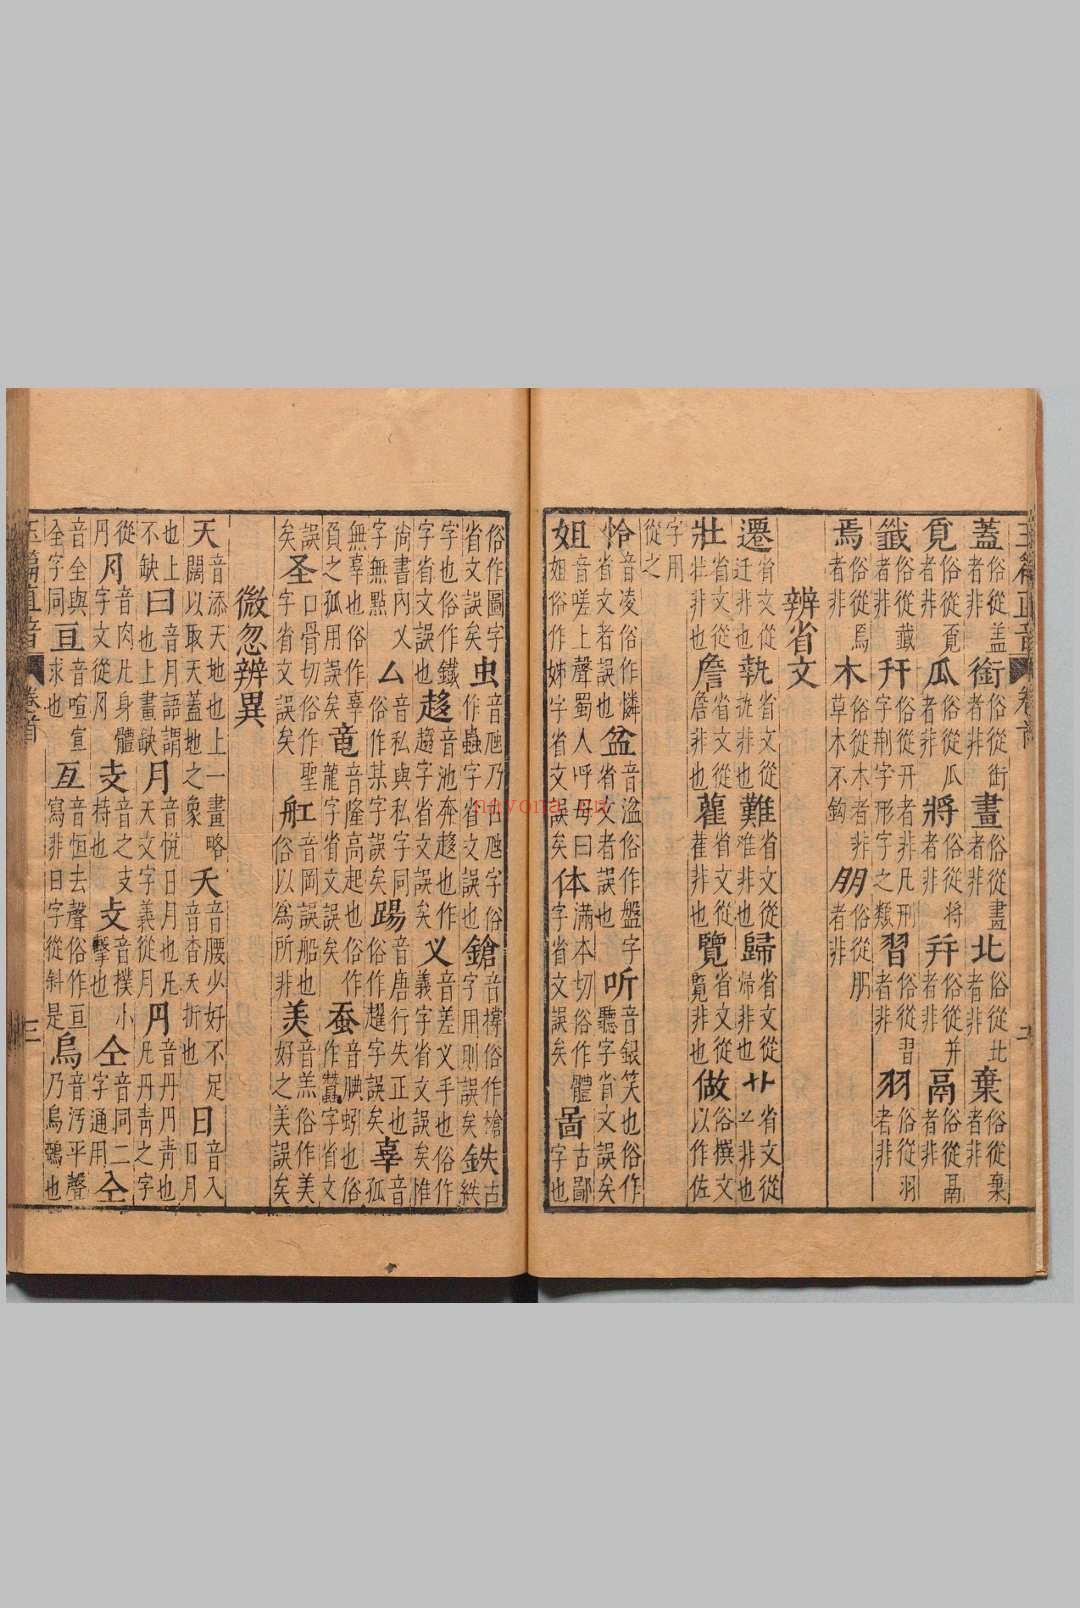 蓋俗從盖者非 銜俗從衘者非 畫俗從畫者非 北俗從北者非 棄俗從棄者非
覓俗從覔者非 瓜俗從瓜者非 將俗從将者非 幷俗從并者非 鬲俗從鬲者非
籤俗從籖者非 幵俗從开者非凡刑字荆字形字之類 習俗從習者非 羽俗從羽者非
焉俗從焉者非 木俗從木者非草木不鈎 朋俗從朋者非
辨省文
遷省文從迁非也 執省文從执非也 難省文從难非也 歸省文從帰非也 廿省文從非也
壯省文從壮非也 詹省文從非也 雚省文從非也 覽省文從覧非也 做俗撰文以作佐
字用從之
怜音凌俗作憐字省文者誤也 盆音溢俗作盤字省文者誤也 听音銀笑也俗作聽字省文誤矣
姐音嗟上聲蜀人呼母曰姐俗作姊字省文誤矣 体滿本切俗作體字省文誤矣 啚古鄙字也
俗作圖字省文誤矣 虫音虺乃虺字俗作蟲字省文誤也 鎗音撐俗作槍字用則誤矣 鉄古紩
字也俗作鐵字省文誤也 趍音池奔趍也作趨字省文誤矣 义音差义手也俗作義字省文誤矣惟
尚書內义字無點 厶音私與私字同俗作某字誤矣 踼音唐行失正也俗作趯字誤矣 辜音孤
無辜也俗作辜負之孤用誤矣 竜音隆高起也俗作龍字省文誤矣 蚕音腆蚓也俗作蠶字省文
誤矣 圣口骨切俗作聖字省文誤矣 舡音岡誤船也俗以為所非 羙音羔俗作美好之美誤矣
微忽辨異
天音添天地也上一畫略闊以取天蓋地之象 夭音腰少好不足音杳夭折也 日音入日月
也上不缺 曰音月語謂也上畫缺 月音悅日月也凡天文字義從月 円音丹丹青也凡丹青之字
從丹 月音肉凡身體字文從月 支音之支持也 攴音撲小擊也 仝音同二字通用 仝
音全與全字同 亘音喧宣求也 亙音恒去聲俗作亘寫非日字從斜是 烏音汚平聲乃烏鵶也
玉篇直音 卷首 三